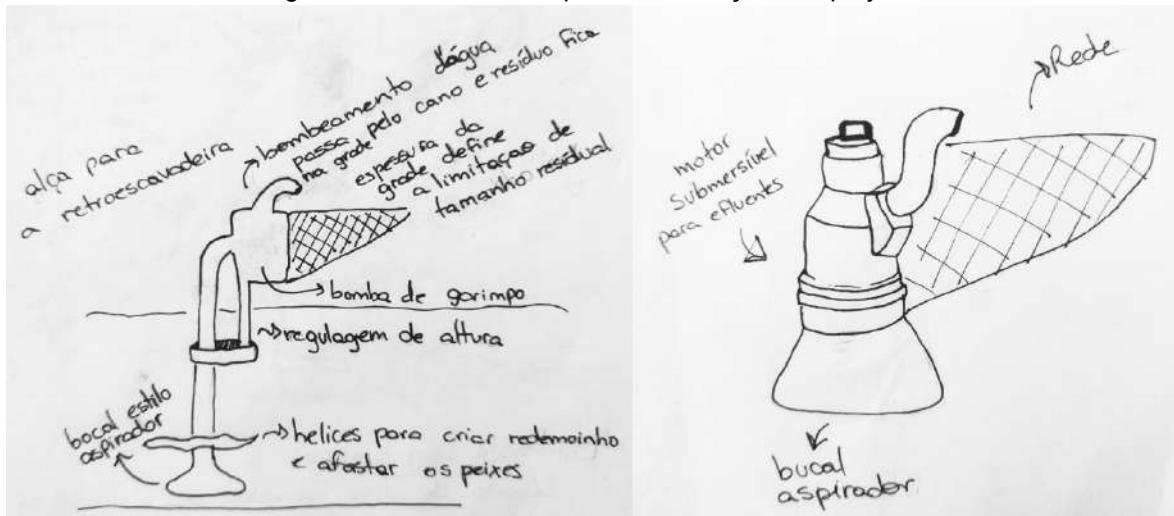 alça para
a retroescavadeira
bombeamento d'água
passa pelo cano e resíduo fica
na grade
espessura da
grade define
a limitação de
tamanho residual
bomba de garimpo
regulagem de altura
bocal estilo
aspirador
helices para criar redemoinho
e afastar os peixes
Rede
motor
submersível
para efluentes
bucal
aspirador